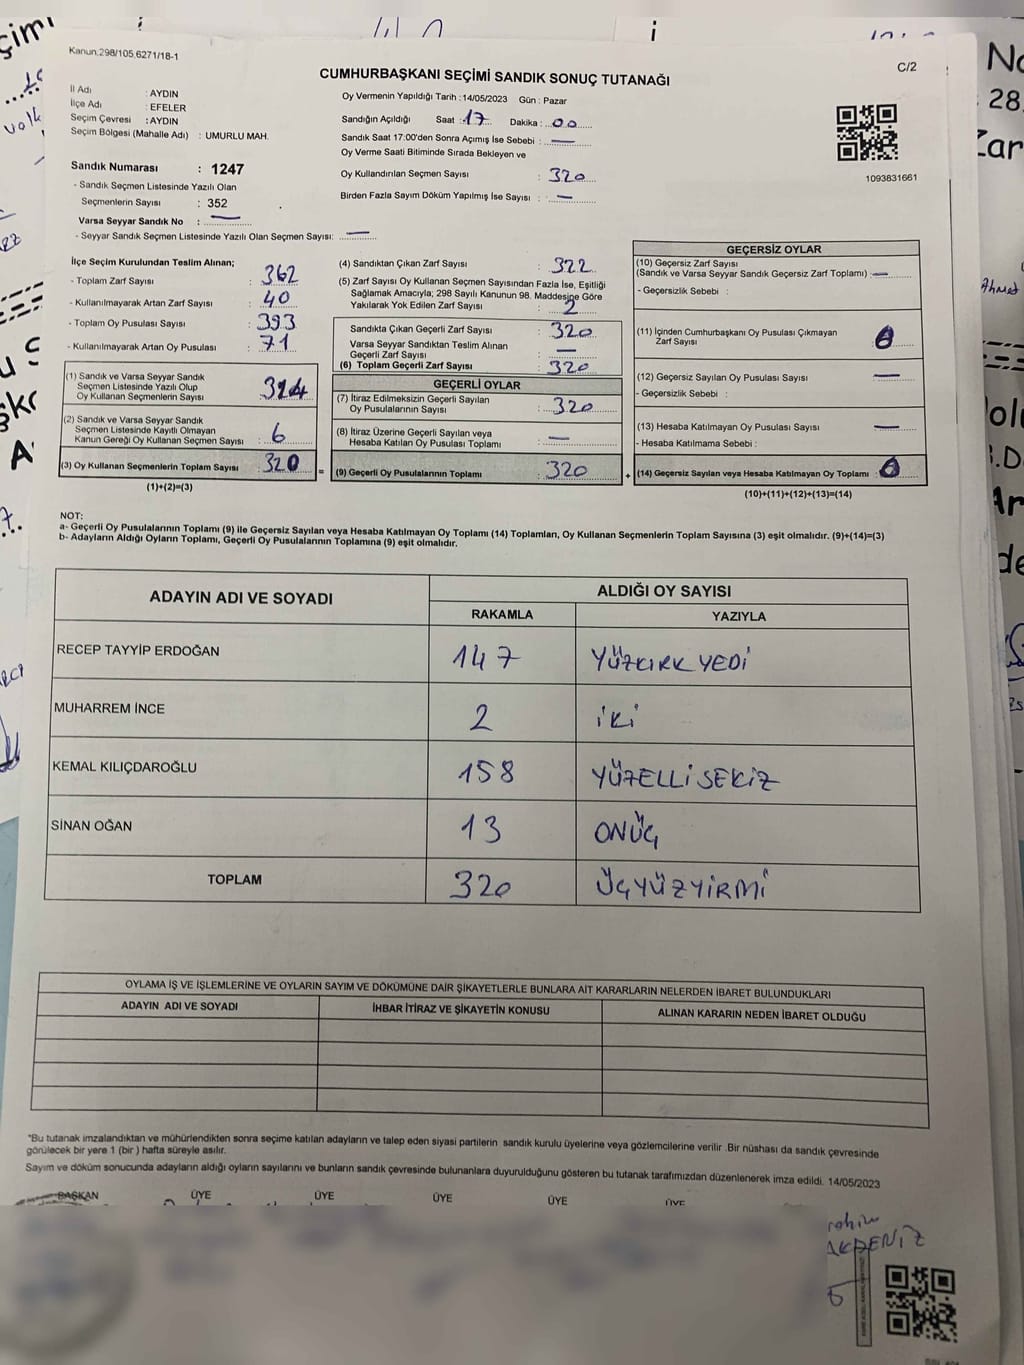 Kanun,298/105,6271/18-1
C/2
CUMHURBAŞKANI SEÇİMİ SANDIK SONUÇ TUTANAĞI
İl Adı : AYDIN
İlçe Adı : EFELER
Seçim Çevresi : AYDIN
Seçim Bölgesi (Mahalle Adı) : UMURLU MAH.
Sandık Numarası : 1247
- Sandık Seçmen Listesinde Yazılı Olan
Seçmenlerin Sayısı : 352
Varsa Seyyar Sandık No : —
- Seyyar Sandık Seçmen Listesinde Yazılı Olan Seçmen Sayısı: —
Oy Vermenin Yapıldığı Tarih : 14/05/2023 Gün : Pazar
Sandığın Açıldığı Saat : 17 Dakika : 00
Sandık Saat 17:00'den Sonra Açımış İse Sebebi : —
Oy Verme Saati Bitiminde Sırada Bekleyen ve
Oy Kullandırılan Seçmen Sayısı : 320
Birden Fazla Sayım Döküm Yapılmış İse Sayısı : —
1093831661
İlçe Seçim Kurulundan Teslim Alınan;
- Toplam Zarf Sayısı : 362
- Kullanılmayarak Artan Zarf Sayısı : 40
- Toplam Oy Pusulası Sayısı : 393
- Kullanılmayarak Artan Oy Pusulası : 71
(1) Sandık ve Varsa Seyyar Sandık
Seçmen Listesinde Yazılı Olup
Oy Kullanan Seçmenlerin Sayısı : 314
(2) Sandık ve Varsa Seyyar Sandık
Seçmen Listesinde Kayıtlı Olmayan
Kanun Gereği Oy Kullanan Seçmen Sayısı : 6
(3) Oy Kullanan Seçmenlerin Toplam Sayısı : 320
(1)+(2)=(3)
(4) Sandıktan Çıkan Zarf Sayısı : 322
(5) Zarf Sayısı Oy Kullanan Seçmen Sayısından Fazla İse, Eşitliği
Sağlamak Amacıyla; 298 Sayılı Kanunun 98. Maddesine Göre
Yakılarak Yok Edilen Zarf Sayısı : 2
Sandıkta Çıkan Geçerli Zarf Sayısı : 320
Varsa Seyyar Sandıktan Teslim Alınan
Geçerli Zarf Sayısı : —
(6) Toplam Geçerli Zarf Sayısı : 320
GEÇERLİ OYLAR
(7) İtiraz Edilmeksizin Geçerli Sayılan
Oy Pusulalarının Sayısı : 320
(8) İtiraz Üzerine Geçerli Sayılan veya
Hesaba Katılan Oy Pusulası Toplamı : —
= (9) Geçerli Oy Pusulalarının Toplamı : 320 +
GEÇERSİZ OYLAR
(10) Geçersiz Zarf Sayısı
(Sandık ve Varsa Seyyar Sandık Geçersiz Zarf Toplamı) : —
- Geçersizlik Sebebi :
(11) İçinden Cumhurbaşkanı Oy Pusulası Çıkmayan
Zarf Sayısı : 0
(12) Geçersiz Sayılan Oy Pusulası Sayısı : —
- Geçersizlik Sebebi :
(13) Hesaba Katılmayan Oy Pusulası Sayısı : —
- Hesaba Katılmama Sebebi :
(14) Geçersiz Sayılan veya Hesaba Katılmayan Oy Toplamı : 0
(10)+(11)+(12)+(13)=(14)
NOT:
a- Geçerli Oy Pusulalarının Toplamı (9) ile Geçersiz Sayılan veya Hesaba Katılmayan Oy Toplamı (14) Toplamları, Oy Kullanan Seçmenlerin Toplam Sayısına (3) eşit olmalıdır. (9)+(14)=(3)
b- Adayların Aldığı Oyların Toplamı, Geçerli Oy Pusulalarının Toplamına (9) eşit olmalıdır.
ADAYIN ADI VE SOYADI
ALDIĞI OY SAYISI
RAKAMLA YAZIYLA
RECEP TAYYİP ERDOĞAN 147 YÜZKIRK YEDİ
MUHARREM İNCE 2 İKİ
KEMAL KILIÇDAROĞLU 158 YÜZELLİ SEKİZ
SİNAN OĞAN 13 ONÜÇ
TOPLAM 320 ÜÇYÜZYİRMİ
OYLAMA İŞ VE İŞLEMLERİNE VE OYLARIN SAYIM VE DÖKÜMÜNE DAİR ŞİKAYETLERLE BUNLARA AİT KARARLARIN NELERDEN İBARET BULUNDUKLARI
ADAYIN ADI VE SOYADI İHBAR İTİRAZ VE ŞİKAYETİN KONUSU ALINAN KARARIN NEDEN İBARET OLDUĞU
"Bu tutanak imzalandıktan ve mühürlendikten sonra seçime katılan adayların ve talep eden siyasi partilerin sandık kurulu üyelerine veya gözlemcilerine verilir .Bir nüshası da sandık çevresinde
görülecek bir yere 1 (bir ) hafta süreyle asılır.
Sayım ve döküm sonucunda adayların aldığı oyların sayılarını ve bunların sandık çevresinde bulunanlara duyurulduğunu gösteren bu tutanak tarafımızdan düzenlenerek imza edildi. 14/05/2023
BAŞKAN ÜYE ÜYE ÜYE ÜYE ÜYE
AKDENİZ